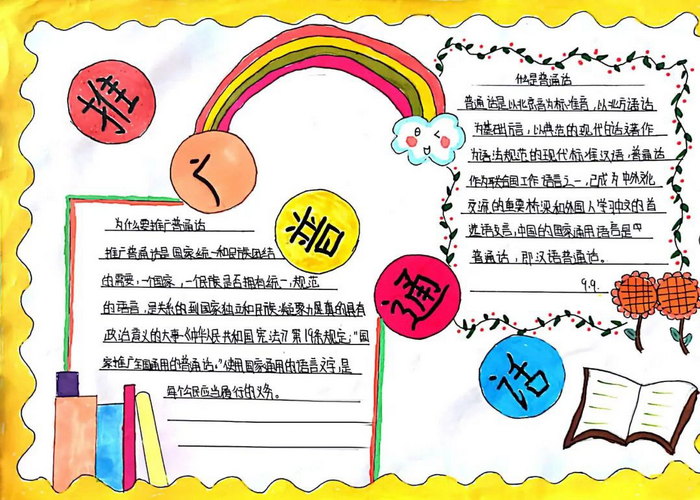 推
广
普
通
话
为什么要推广普通话
推广普通话是国家统一和民族团结
的需要,一个国家,一个民族是否拥有统一,规范
的语言,是关系的到国家独立和民族凝聚力是真的具有
政治意义的大事《中华人民共和国宪法》第19条规定:“国
家推广全国通用的普通话。”使用国家通用的语言文字,是
每个公民应当履行的义务。
什么是普通话
普通话是以北京音为标准音,以北方话
为基础方言,以典范的现代白话文著作
为语法规范的现代标准汉语,普通话
作为联合国工作语言之一,已成为中外文化
交流的重要桥梁和外国人学习中文的首
选语言,中国的国家通用语言是
普通话,即汉语普通话。
9.9.